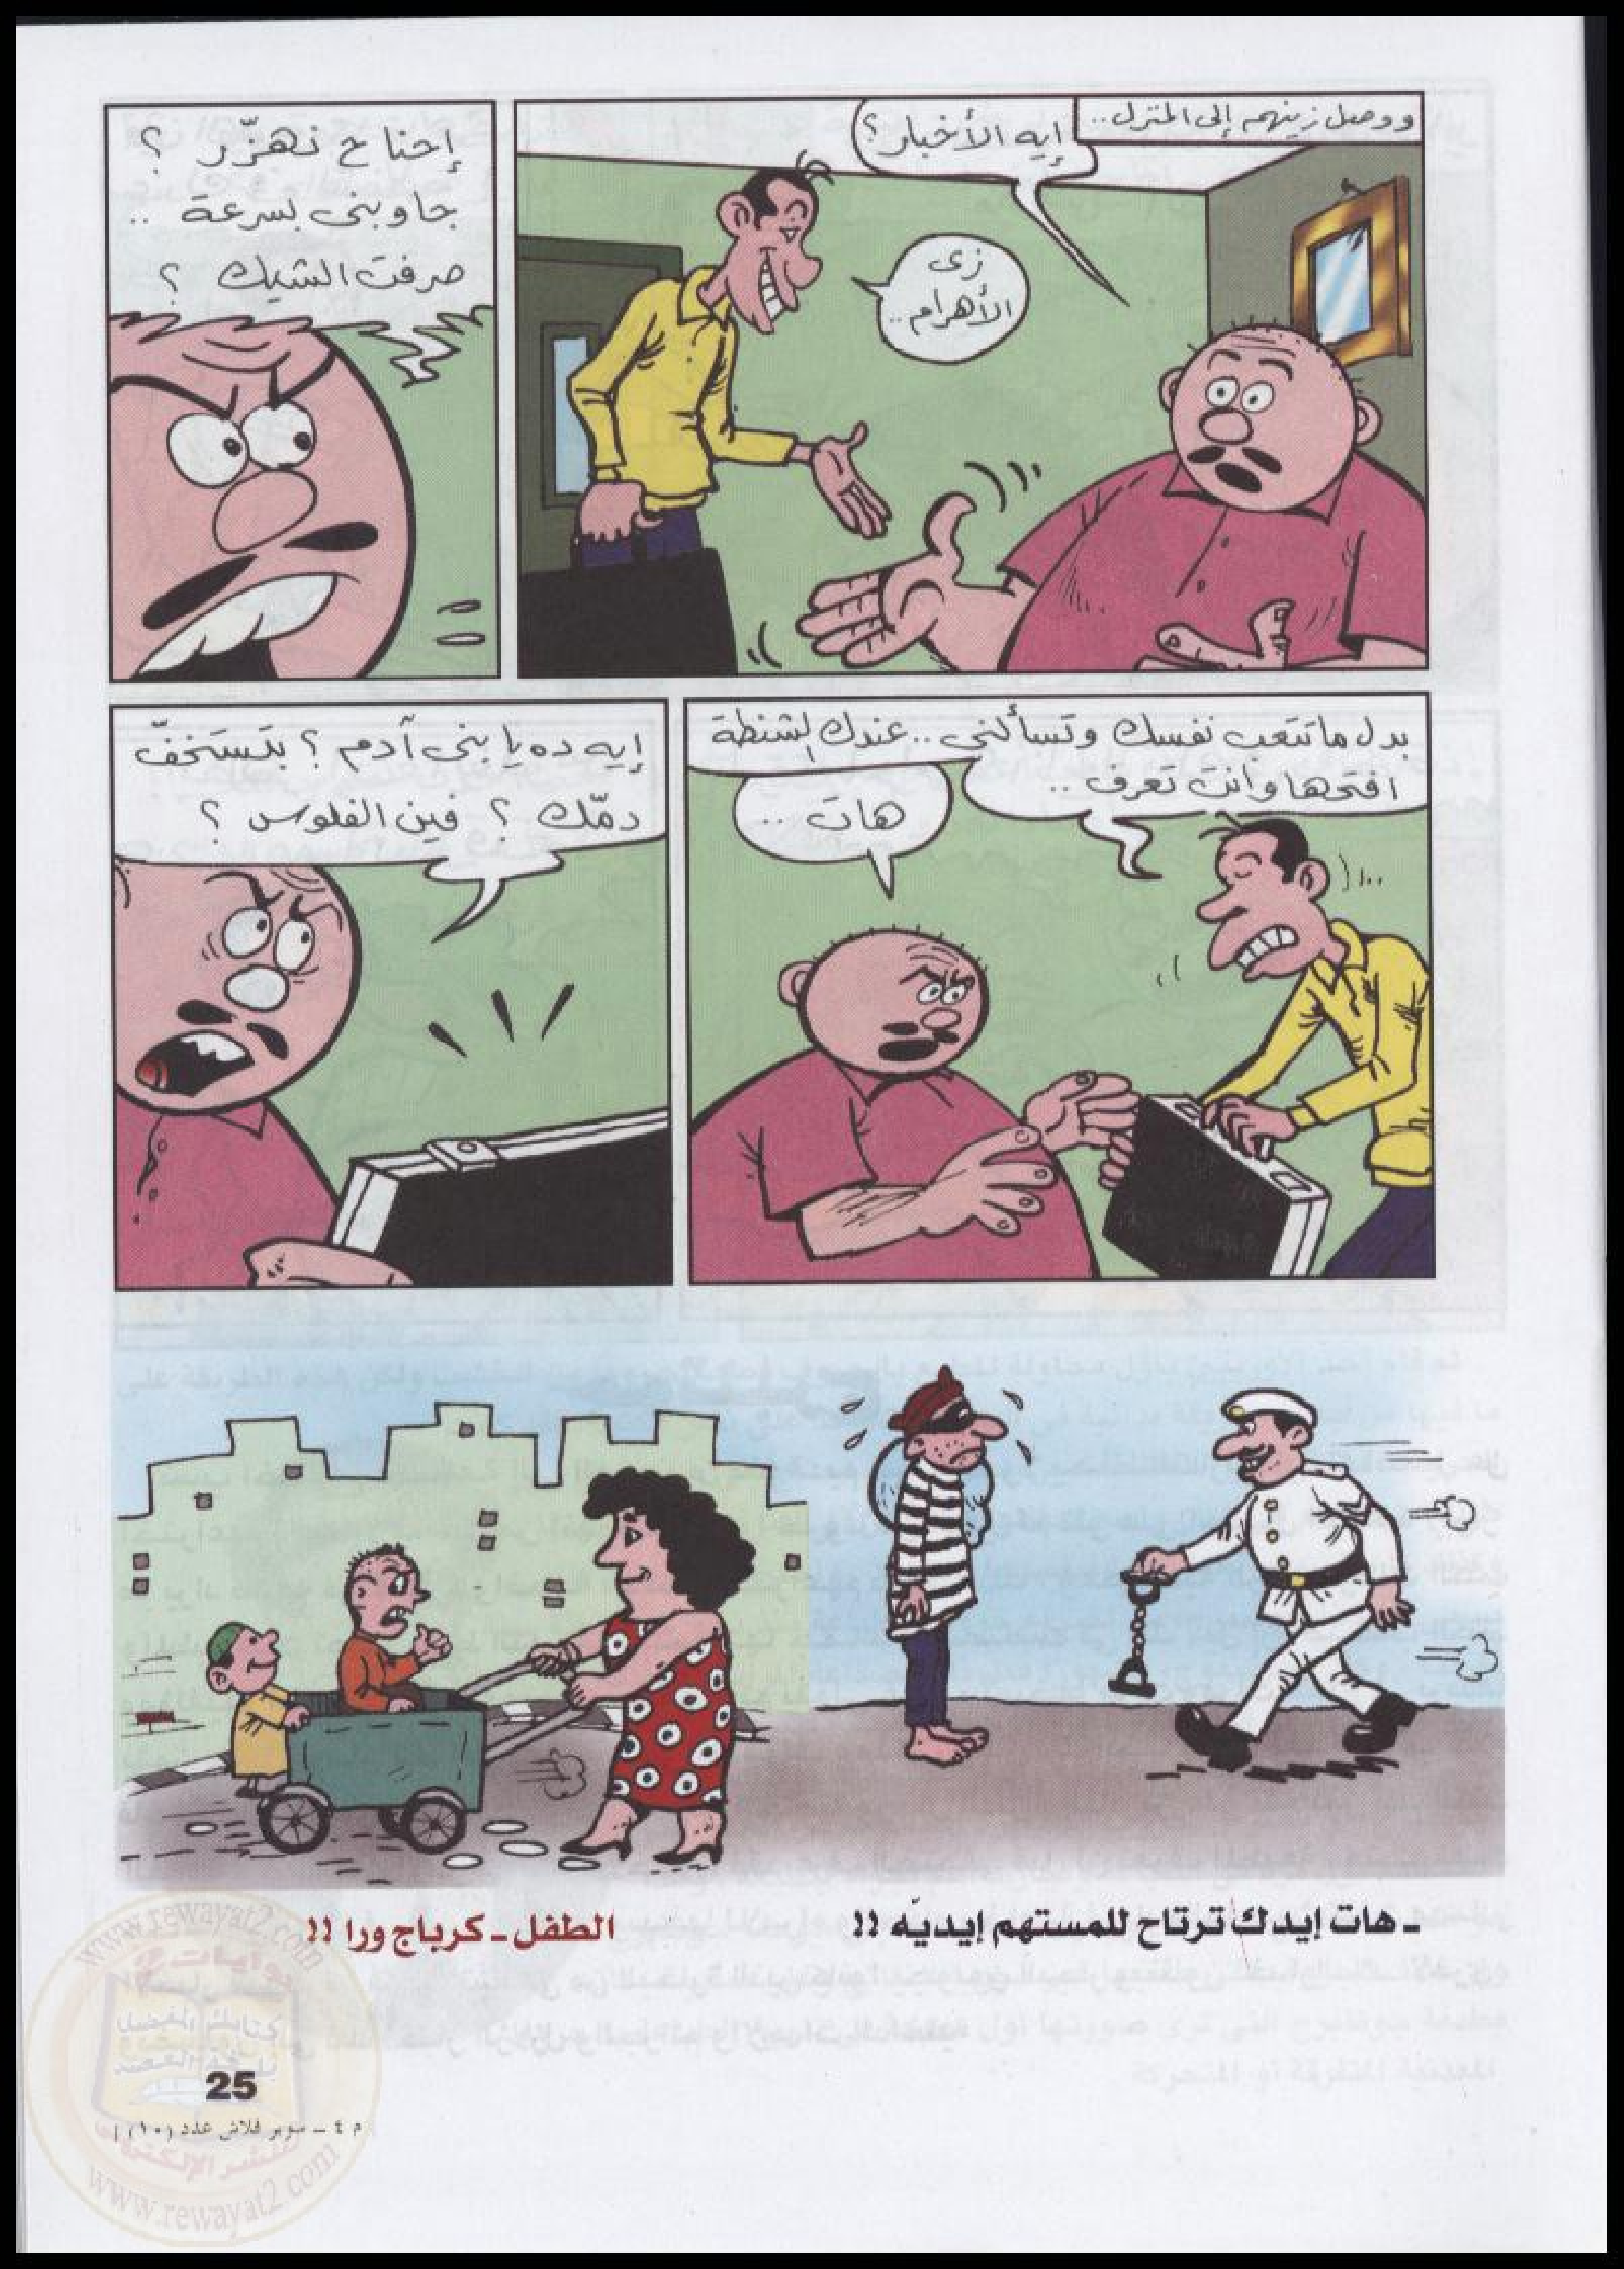 ووصل زينهم إلى المنزل..
إيه الأخبار؟
زى
الأهرام..
إحنا ح نهزّر ؟
جاوبنى بسرعة ..
صرفت الشيك ؟
بدل ما تتعب نفسك وتسألنى .. عندك الشنطة
افتحها وانت تعرف ..
هات ..
إيه ده يا بنى آدم ؟ بتستخفّ
دمّك ؟ فين الفلوس ؟
ـ هات إيدك ترتاح للمستهم إيديّه !!
الطفل ـ كرباج ورا !!
25
م ٤ ــ سوبر فلاش عدد (١٠)
www.rewayat2.com
www.rewayat2.com